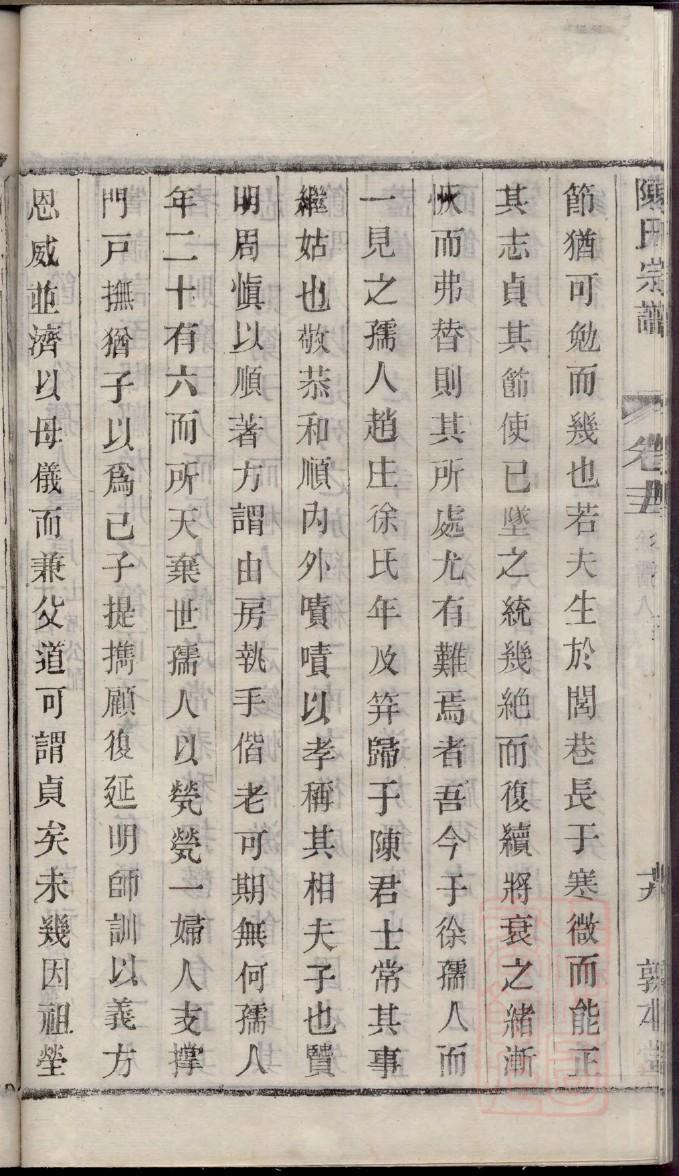 陳氏宗譜
卷
敦本堂
節猶可勉而幾也若夫生於閭巷長于寒微而能正
其志貞其節使已墜之統幾絶而復續將衰之緒漸
恢而弗替則其所處尤有難焉者吾今于徐孺人而
一見之孺人趙庄徐氏年及笄歸于陳君士常其事
繼姑也敬恭和順内外嘖嘖以孝稱其相夫子也賢
明周慎以順著方謂由房執手偕老可期無何孺人
年二十有六而所天棄世孺人以煢煢一婦人支撐
門戸撫猶子以爲己子提擕顧復延明師訓以義方
恩威並濟以母儀而兼父道可謂貞矣未幾因祖塋